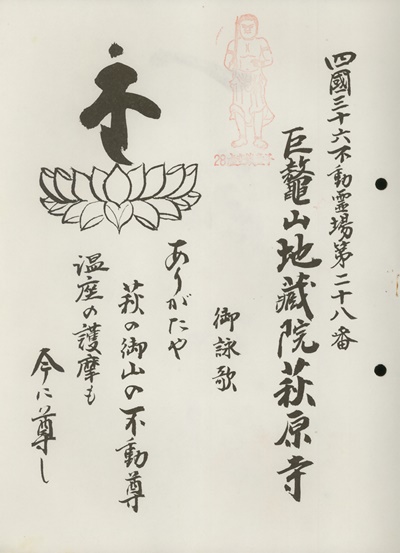 四國三十六不動霊場第二十八番
巨鼇山地蔵院萩原寺
御詠歌
ありがたや
萩の御山の不動尊
温座の護摩も
今に尊し